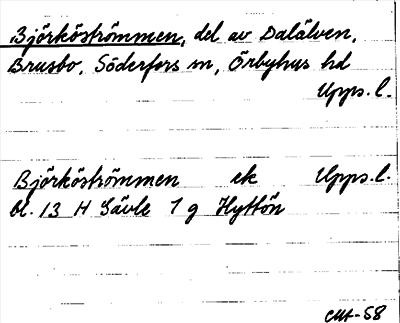 Björköströmmen, del av Dalälven,
Brusbo, Söderfors sn, Örbyhus hd
Upps. l.
Björköströmmen ek Upps. l.
bl. 13 H Gävle 1 g Hyttön
-58